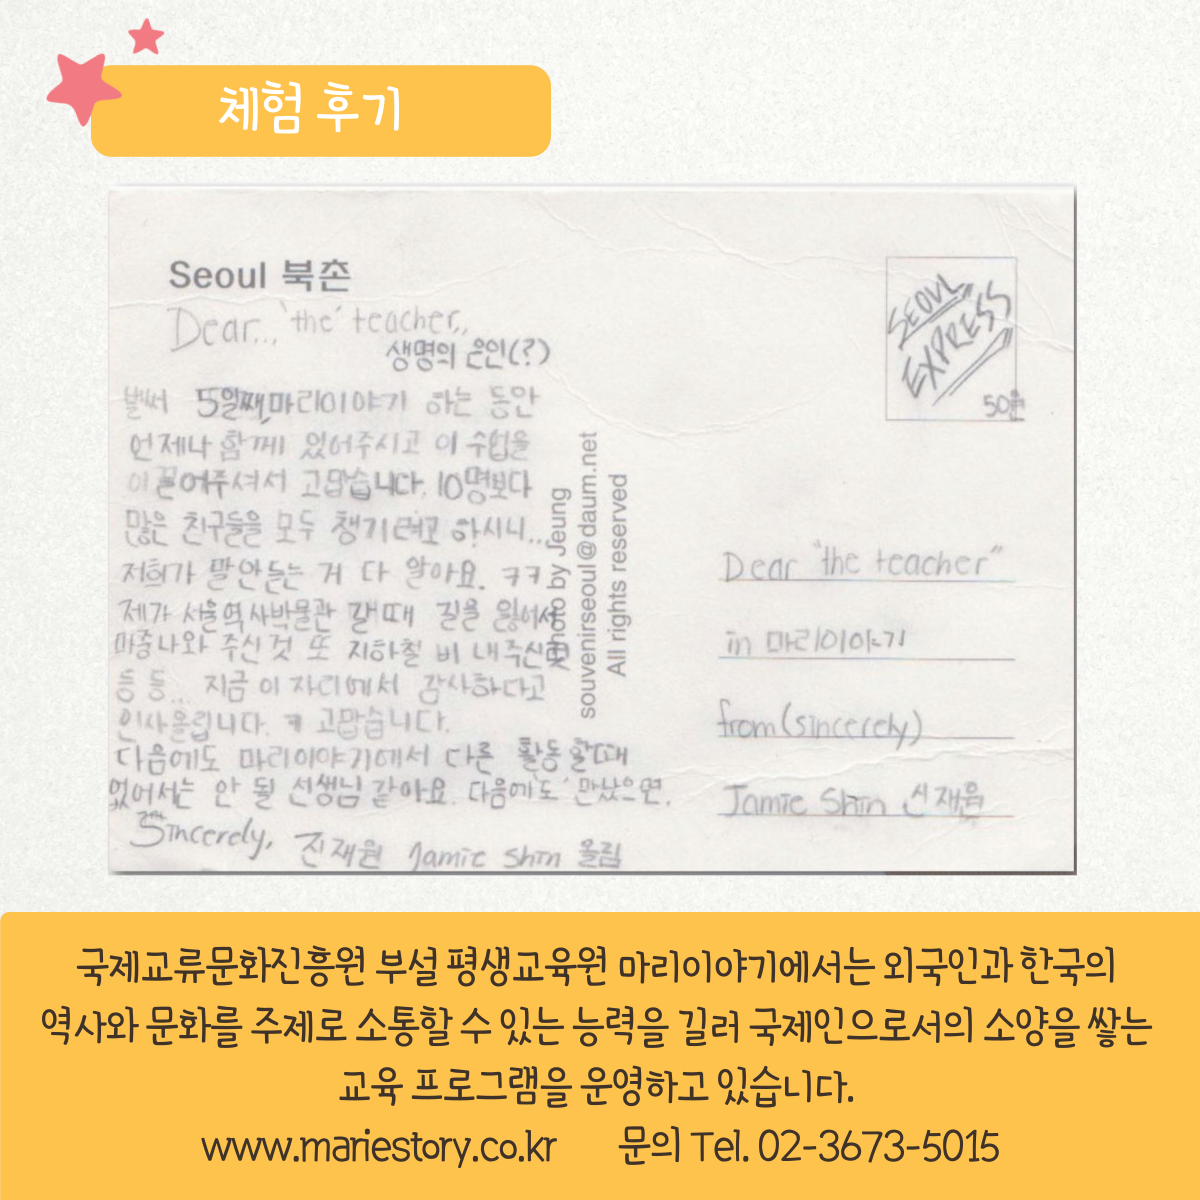 체험 후기
Seoul 북촌
Dear..., 'the' teacher,,
생명의 은인(?)
벌써 5일째, 마리이야기 하는 동안
언제나 함께 있어주시고 이 수업을
이끌어주셔서 고맙습니다. 10명보다
많은 친구들을 모두 챙기려고 하시니...
저희가 말 안듣는 거 다 알아요. ㅋㅋ
제가 서울역사박물관 갈때 길을 잃어서
마중나와 주신 것 또 지하철 비 내주신
등 등... 지금 이 자리에서 감사하다고
인사올립니다. ㅋ 고맙습니다.
다음에도 마리이야기에서 다른 활동할때
없어서는 안 될 선생님 같아요. 다음에도 만났으면.
Sincerely, 신재원 Jamie Shin 올림
Photo by Jeung
souvenirseoul@daum.net
All rights reserved
SEOUL
EXPRESS
50원
Dear "the teacher"
in 마리이야기
from (sincerely)
Jamie Shin 신재원
국제교류문화진흥원 부설 평생교육원 마리이야기에서는 외국인과 한국의
역사와 문화를 주제로 소통할 수 있는 능력을 길러 국제인으로서의 소양을 쌓는
교육 프로그램을 운영하고 있습니다.
www.mariestory.co.kr 문의 Tel. 02-3673-5015